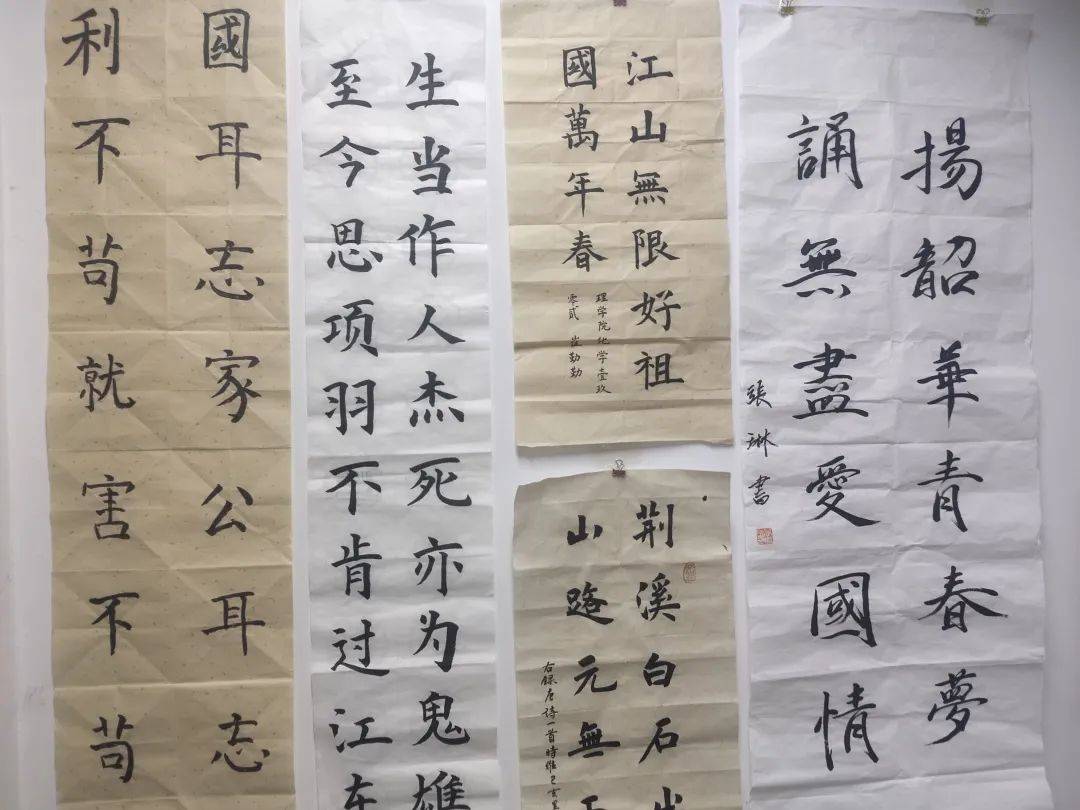 揚韶華青春夢
誦無盡愛國情
張琳書
江山無限好祖
國萬年春
理学院化学壹玖
零贰 崔勤勤
荆溪白石
山路元無
右録唐诗一首時維己亥
生当作人杰死亦为鬼雄
至今思项羽不肯过江东
國耳忘家公耳忘
利不苟就害不苟